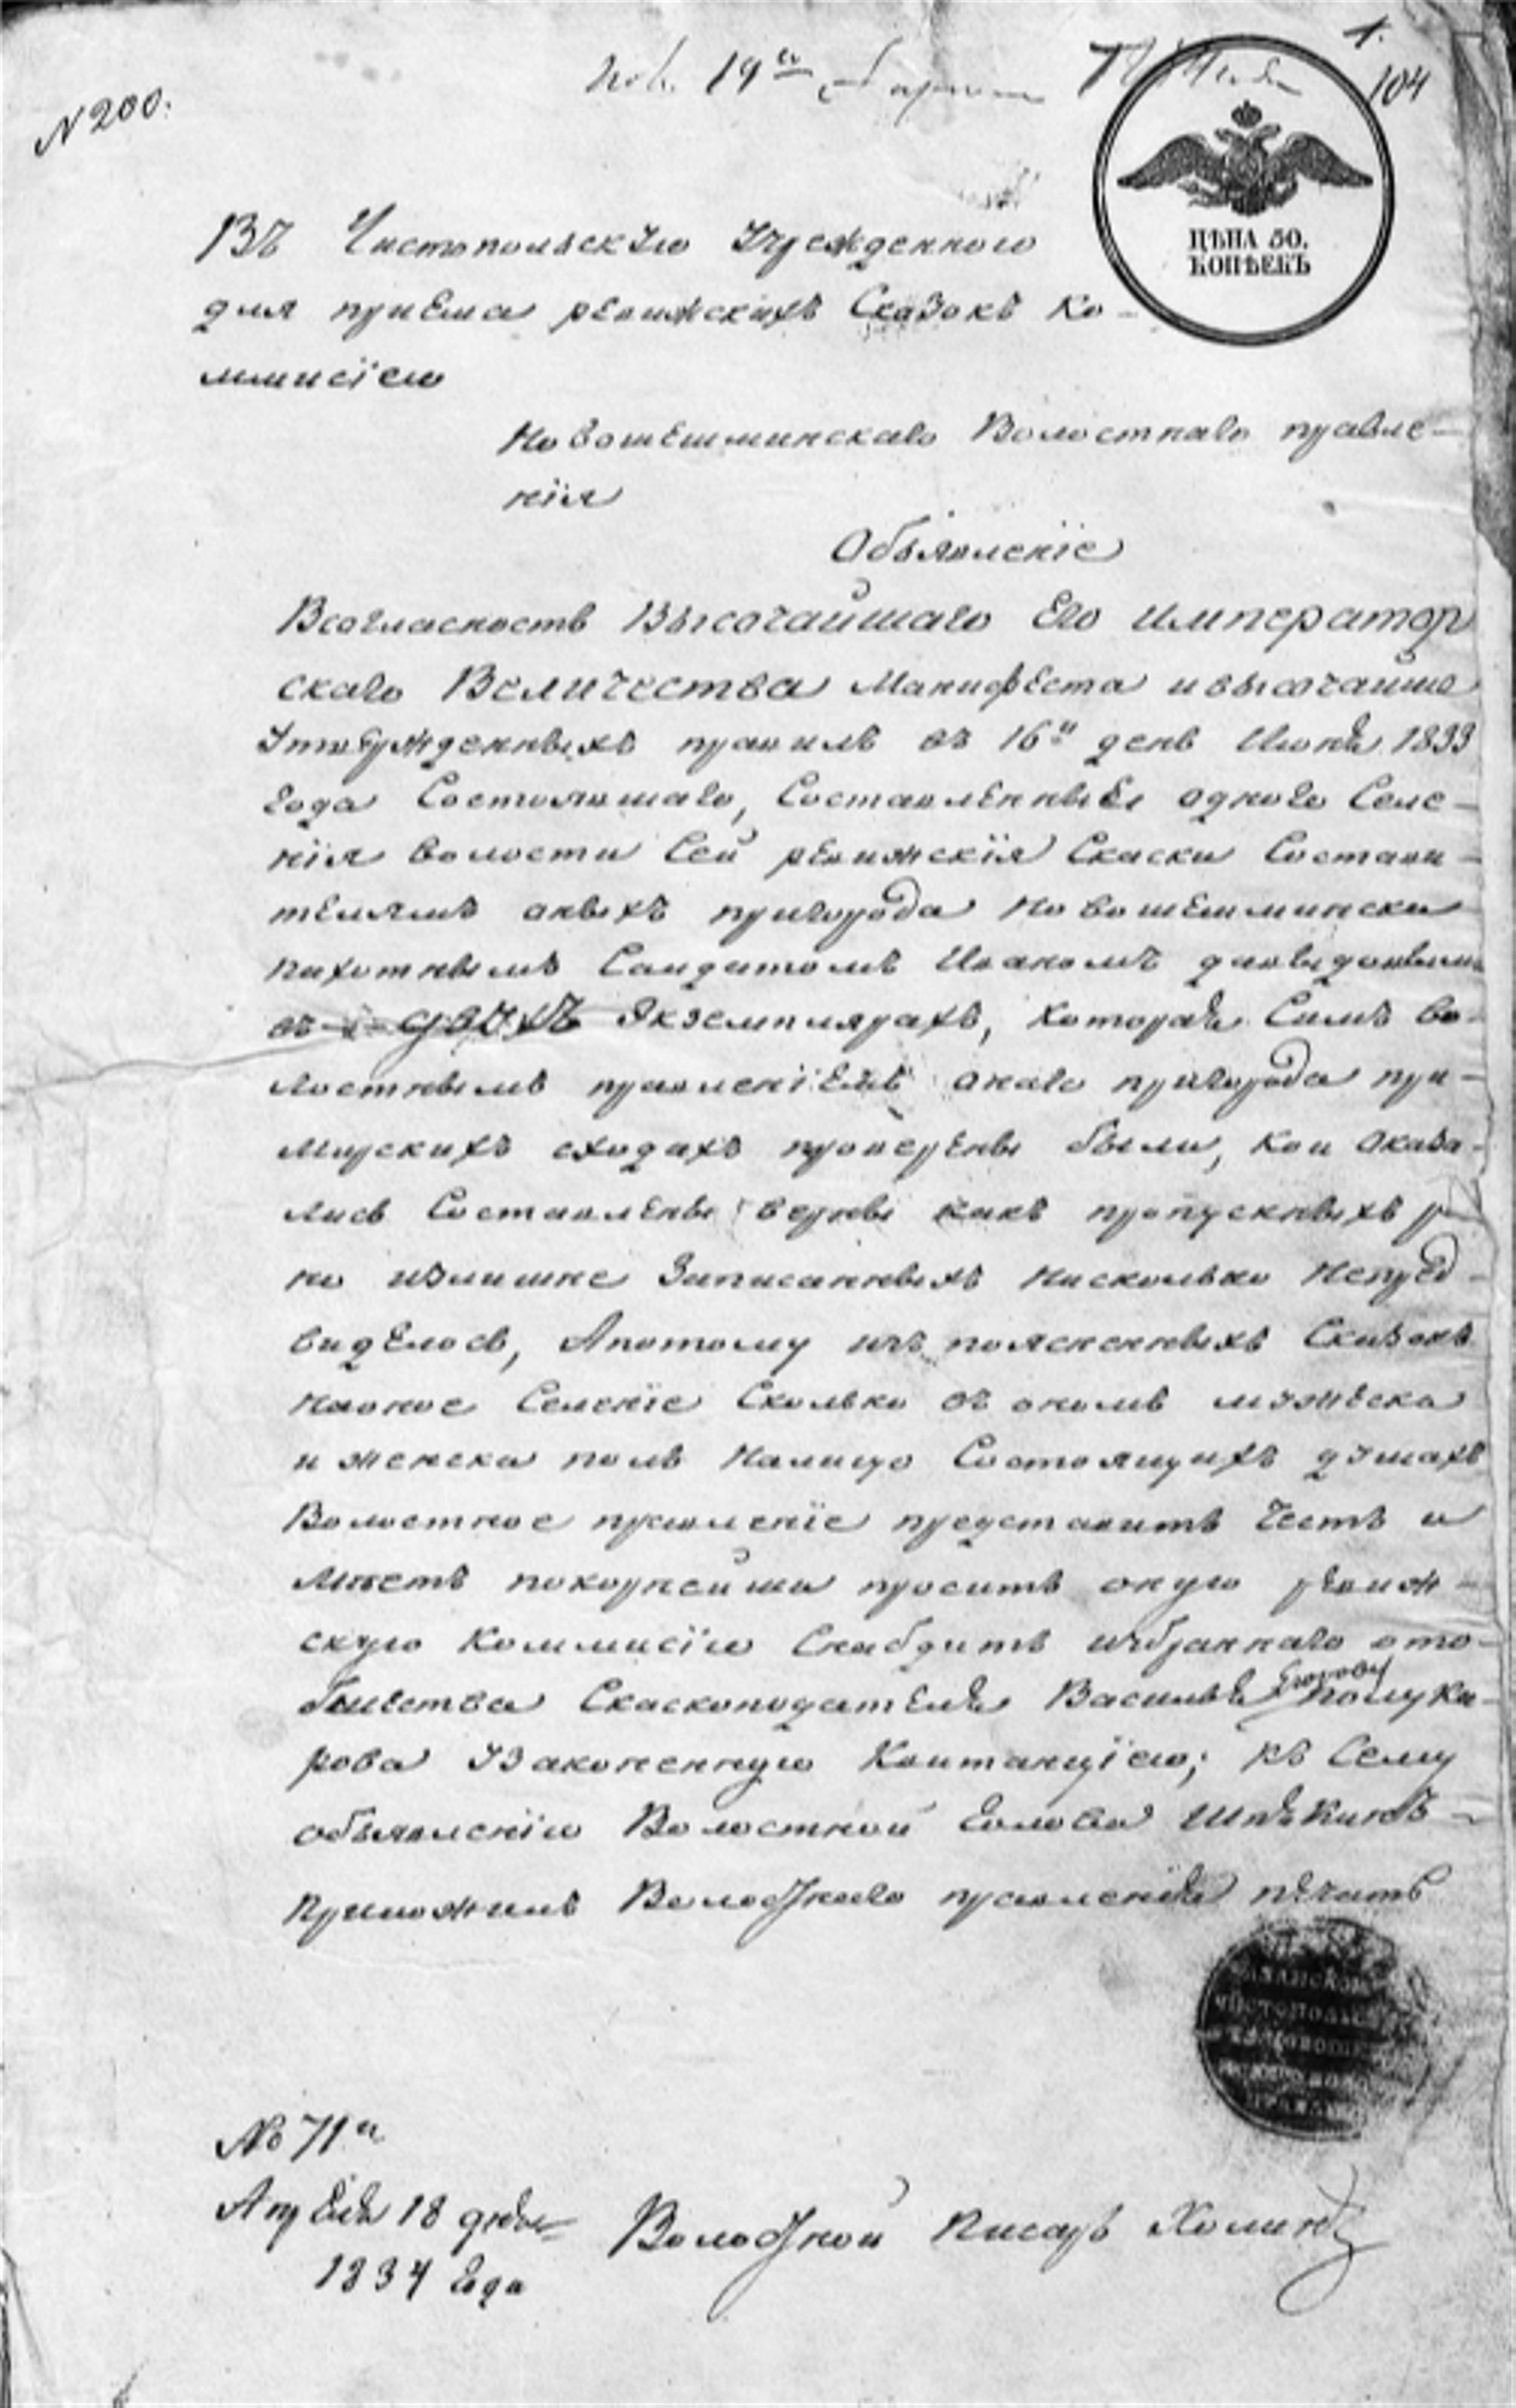 № 200.
1.
104
19го
ЦѢНА 50.
КОПѢЕКЪ
Въ Чистопольскую Учрежденною
для приема ревижскихъ Сказокъ Ко-
ммисїею
Новошешминскаго Волостнаго правле-
нїя
Объявленїе
Всогласность Высочайшаго Его Император
скаго Величества Манифеста ивысочайше
Утвержденныхъ правилъ въ 16й день Июня 1833
года Состоявшаго, Составленные одного Селе-
нїя волости Сей ревижскїя Скаски Состави-
телямъ оныхъ пригорода Новошешминска
пахотнымъ Солдатомъ Иваномъ давыдовымъ
въ двухъ Экземплярахъ, которыя Симъ во-
лостнымъ правленїемъ онаго пригорода при-
мирскихъ сходахъ проверены были, кои оказа-
лись Составлены верны какъ пропускныхъ
но излишне Записанныхъ нисколько Непред-
виделось, Апотому изъ поясненныхъ Сказокъ
Наоное Селенїе Сколько въ ономъ мужеска
и женска полъ Налицо Состоящихъ душахъ
Волостное правленїе представить честь и
Меетъ покорнейше просить оную ревиж-
скую Коммисїю Снабдить избраннаго отъ
общества Скаскоподателя Василья Егорова Полука-
рова Узаконенную Квитанцїею; къ Сему
объявленїю Волостной голова
Приложилъ Волостнаго правленїя печать
КАЗАНСКОЙ
ЧИСТОПОЛЬСК
№ 71й
Апреля 18 дня
1834 года
Волостной Писарь Хомин